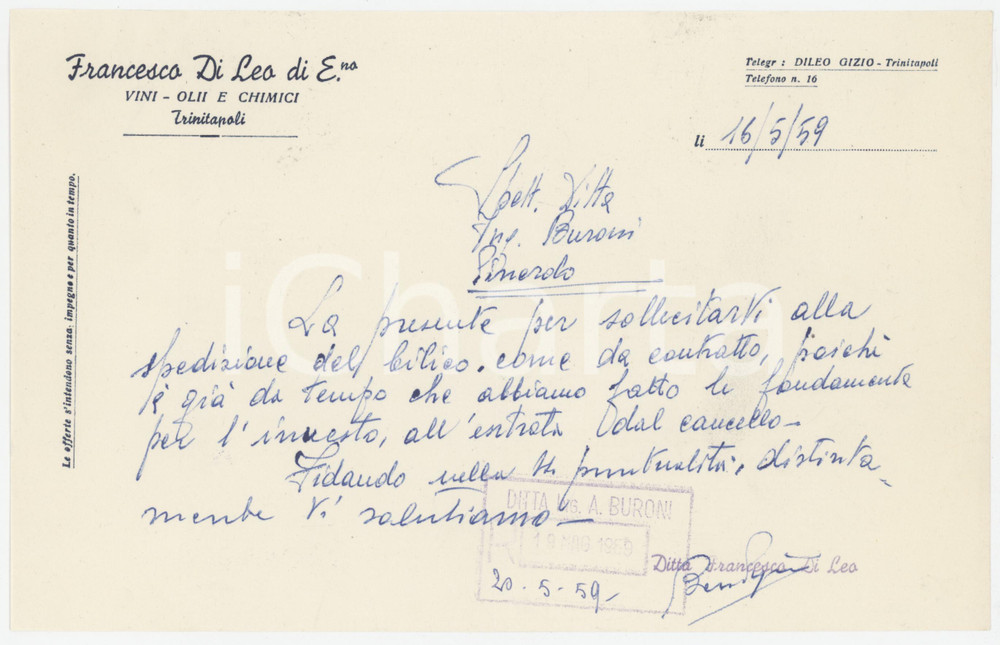 Francesco Di Leo di E.no
VINI - OLII E CHIMICI
Trinitapoli
Telegr : DILEO GIZIO - Trinitapoli
Telefono n. 16
li 16/5/59
Le offerte s'intendono senza impegno e per quanto in tempo.
Spett. Ditta
Ing. Buroni
Pinerolo
La presente per sollecitarVi alla
spedizione del bilico, come da contratto, poichè
è già da tempo che abbiamo fatto le fondamenta
per l'innesto, all'entrata dal cancello -
Fidando nella Vs puntualità, distinta-
mente Vi salutiamo -
DITTA Ing. A. BURONI
1959
20-5-59-
Ditta Francesco Di Leo
iCharta